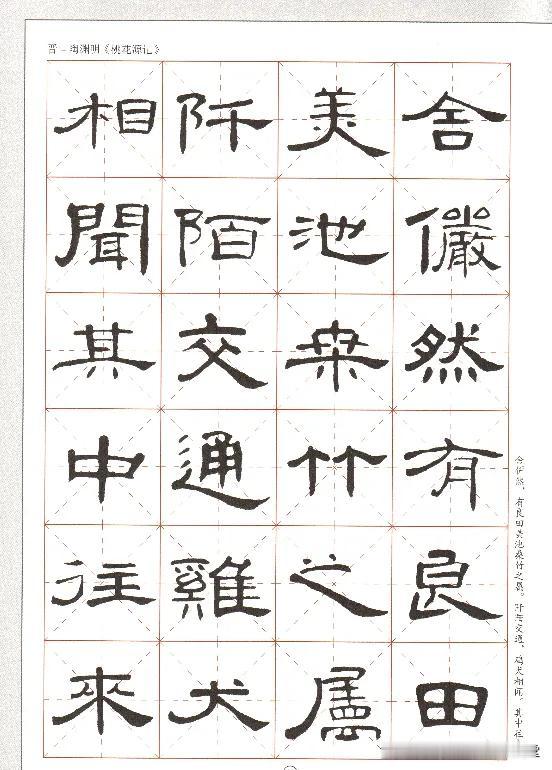 晋－陶渊明《桃花源记》
舍儼然有良田
美池桒竹之屬
阡陌交通雞犬
相聞其中往來
舍俨然，有良田美池桑竹之属。阡陌交通，鸡犬相闻。其中往